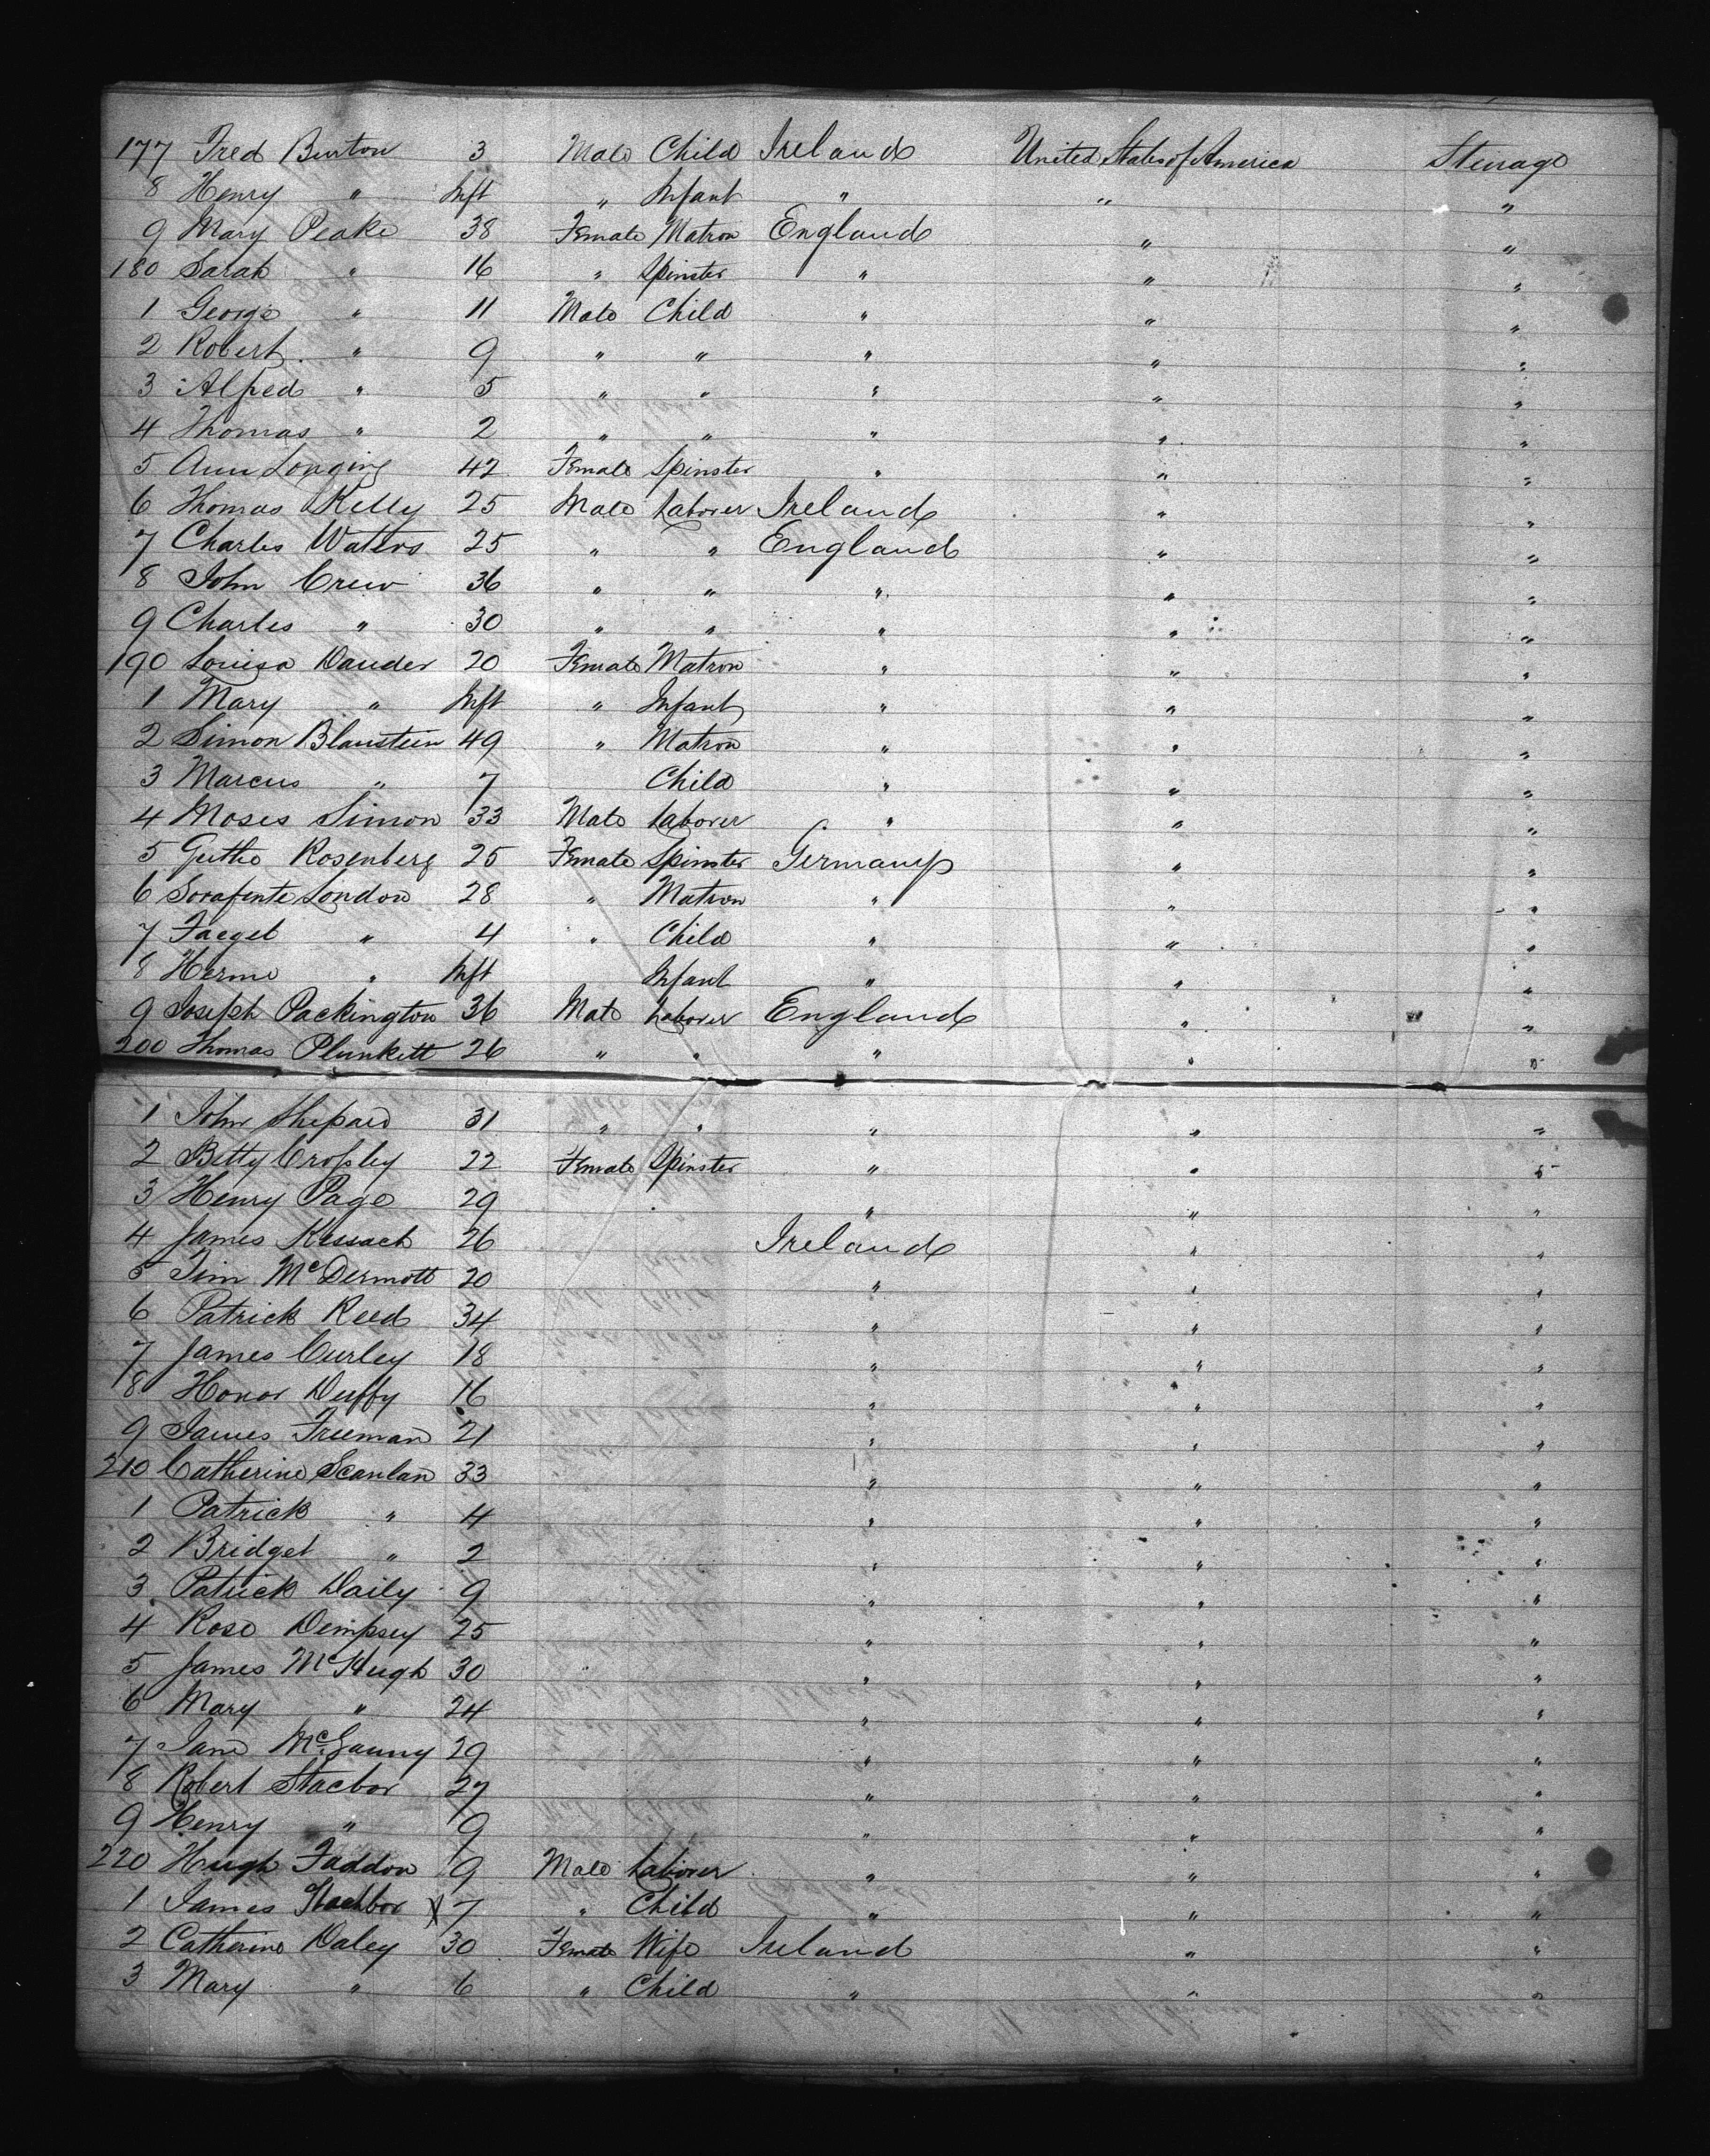 177 Fred Burton 3 Male Child Ireland United States of America Steerage
8 Henry " Inft " Infant " " "
9 Mary Peake 38 Female Matron England " "
180 Sarah " 16 " Spinster " " "
1 George " 11 Male Child " " "
2 Robert " 9 " " " " "
3 Alfred " 5 " " " " "
4 Thomas " 2 " " " " "
5 Ann Longing 42 Female Spinster " " "
6 Thomas Kelly 25 Male Laborer Ireland " "
7 Charles Waters 25 " " England " "
8 John Crew 36 " " " " "
9 Charles " 30 " " " " "
190 Louisa Dauder 20 Female Matron " " "
1 Mary " Inft " Infant " " "
2 Simon Blaustein 49 " Matron " " "
3 Marcus " 7 Child " " "
4 Moses Simon 33 Male Laborer " " "
5 Guthe Rosenberg 25 Female Spinster Germany " "
6 London 28 " Matron " " "
7 Faegel " 4 " Child " " "
8 Herme " Inft Infant " " "
9 Joseph Packington 36 Male Laborer England " "
200 Thomas Plunkett 26 " " " " "
1 John Shepard 31 " " " " "
2 Betty Crossley 22 Female Spinster " " "
3 Henry Page 29 " " "
4 James Kissach 26 Ireland " "
5 Tim McDermott 20 " " "
6 Patrick Reed 34 " " "
7 James Curley 18 " " "
8 Honor Duffy 16 " " "
9 James Freeman 21 " " "
210 Catherine Scanlan 33 " " "
1 Patrick " 4 " " "
2 Bridget " 2 " " "
3 Patrick Daily 9 " " "
4 Rose Dempsey 25 " " "
5 James McHugh 30 " " "
6 Mary " 24 " " "
7 Jane McGauny 29 " " "
8 Robert Stacbor 27 " " "
9 Henry " 9 " " "
220 Hugh Faddon 9 Male Laborer " " "
1 James Stachbor X 7 " Child " " "
2 Catherine Daley 30 Female Wife Ireland " "
3 Mary " 6 " Child " " "